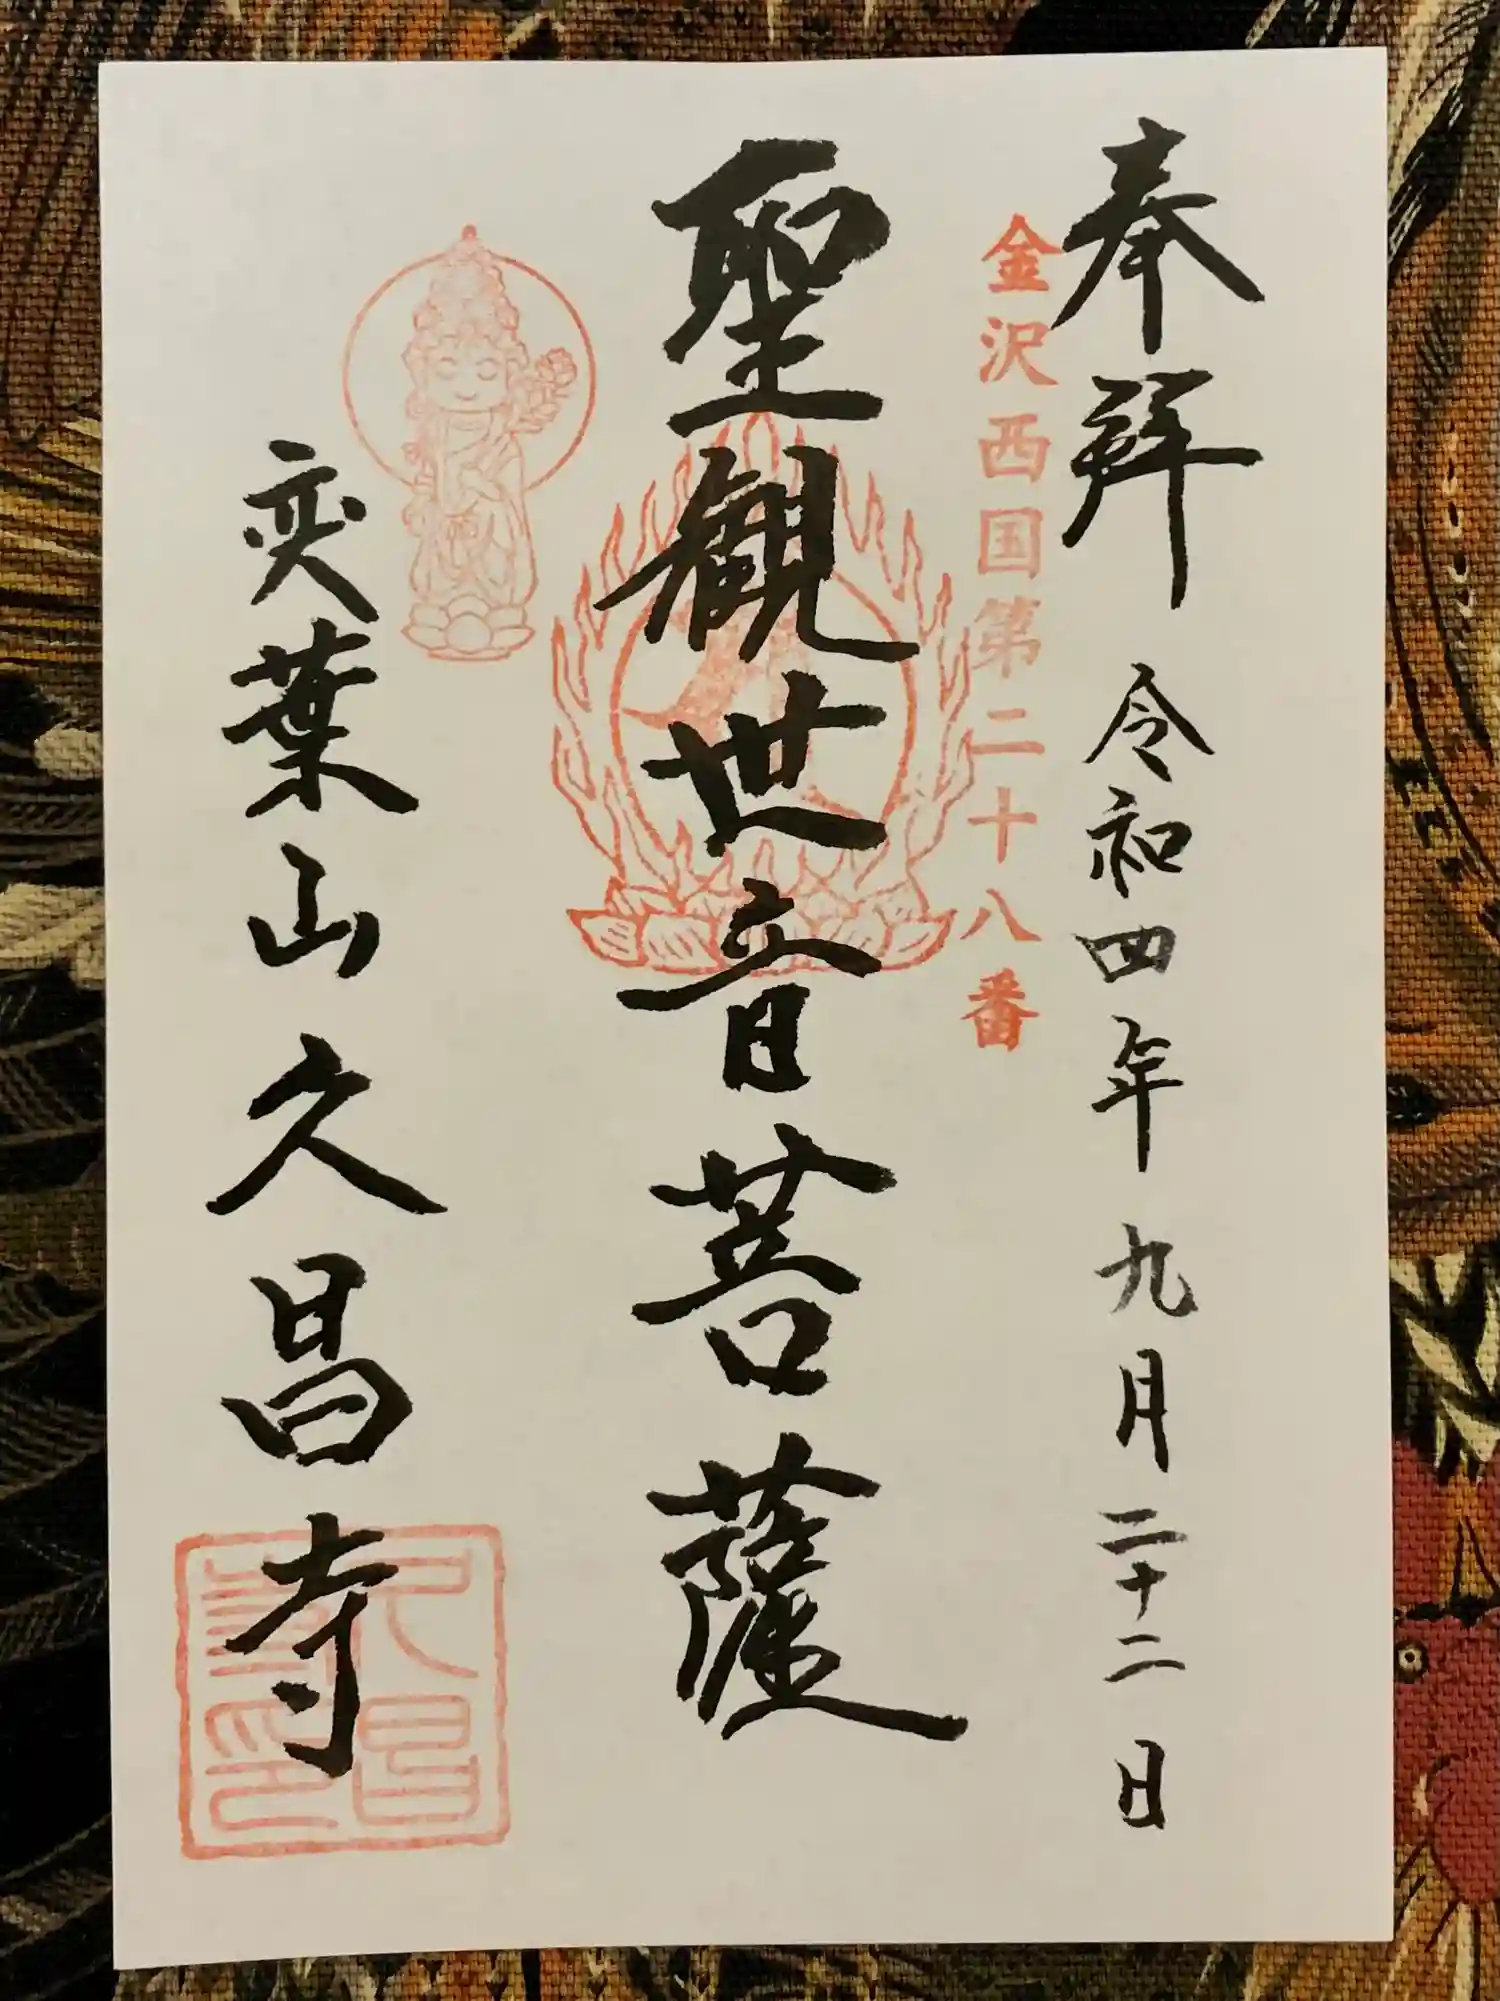 奉拝 令和四年九月二十二日
金沢西国第二十八番
聖観世音菩薩
奕葉山久昌寺
久昌寺印